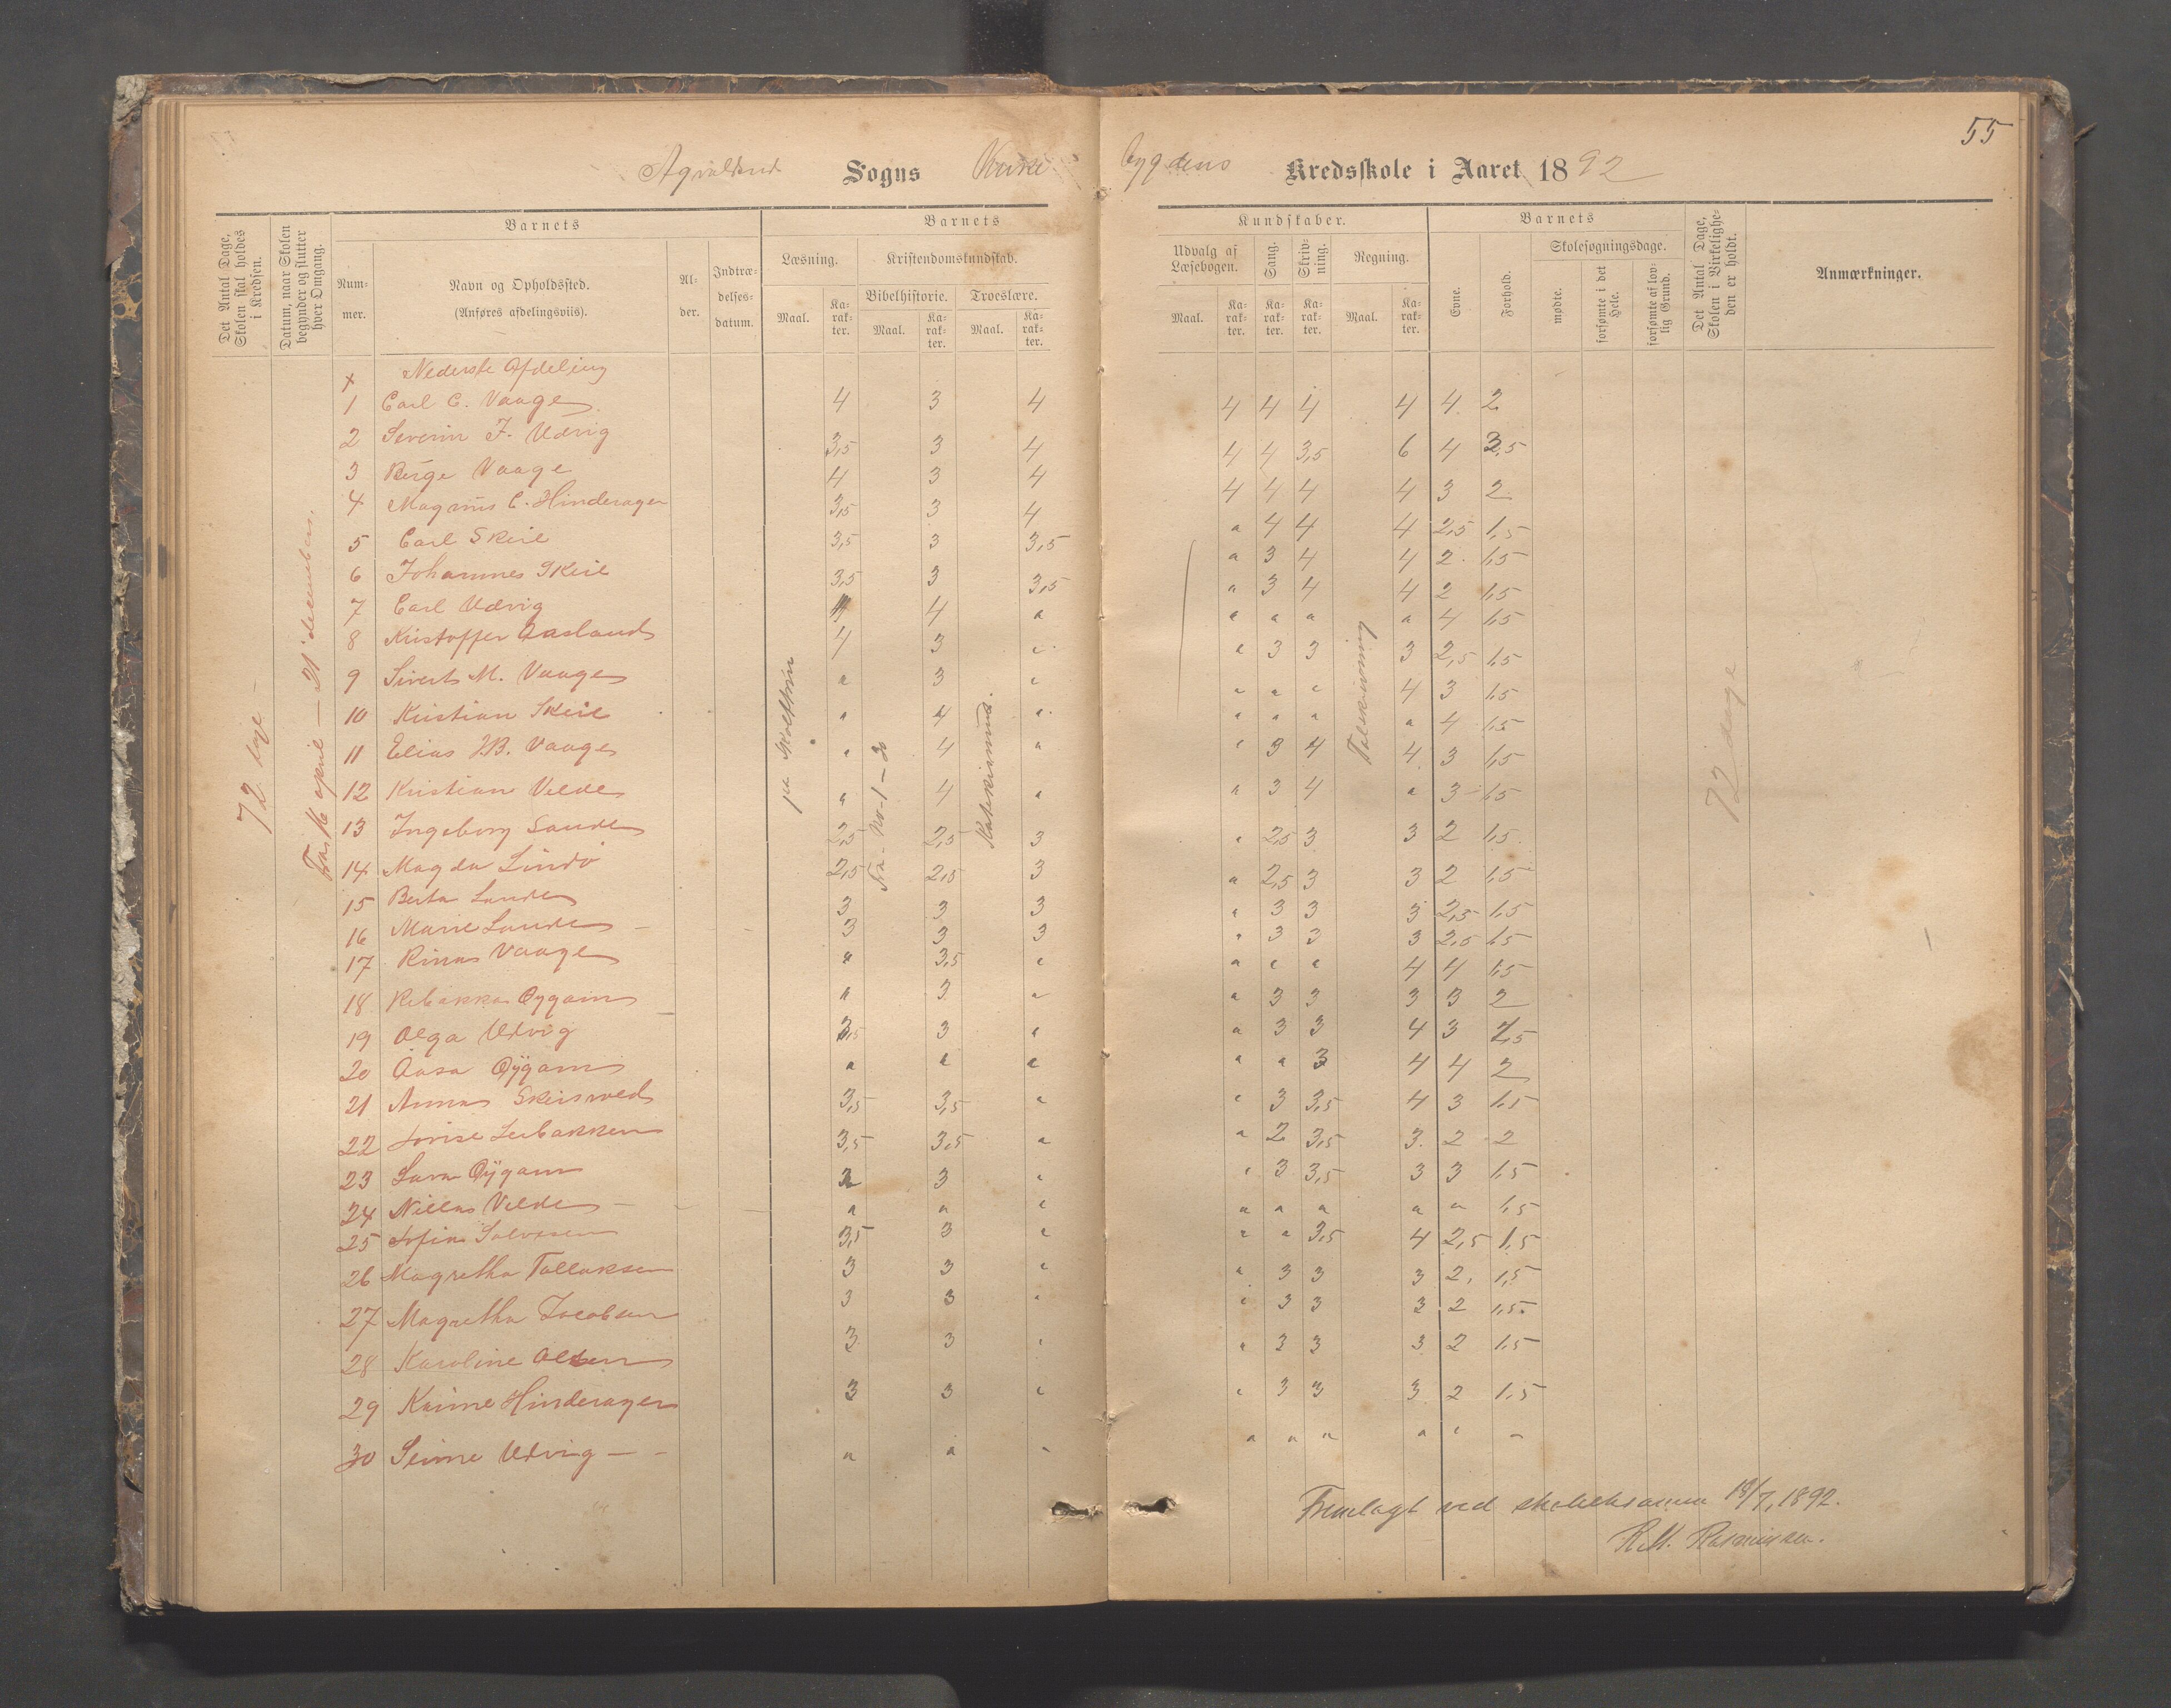 55
Sogns
bygdens Kredsskole i Aaret 1892
Det Antal Dage, Skolen skal holdes i Kredsen.
Datum, naar Skolen begynder og slutter hver Omgang.
Barnets
Nummer.
Navn og Opholdssted.
(Anføres afdelingsviis).
Alder.
Indtrædelses-datum.
Barnets
Læsning.
Maal.
Karakter.
Kristendomskundskab.
Bibelhistorie.
Maal.
Karakter.
Troeslære.
Maal.
Karakter.
Kundskaber.
Udvalg af Læsebogen.
Maal.
Karakter.
Sang.
Karakter.
Skrivning.
Karakter.
Regning.
Maal.
Karakter.
Barnets
Evne.
Forhold.
Skolesøgningsdage.
mødte.
forsømte i det Hele.
forsømte af lovlig Grund.
Det Antal Dage, Skolen i Virkeligheden er holdt.
Anmærkninger.
72 dage
Fra 16 april — 21 december.
Katekismus.
Fra No 1 - 20
Talskrivning
72 dage
x Nederste Afdeling
1 Carl C. Vaage 4 3 4 4 4 4 4 4 2
2 Severin J. Udvig 3,5 3 4 4 4 3,5 6 4 3,5
3 Berge Vaage 4 3 4 4 4 4 4 3 2
4 Magnus C. Hinderager 3,5 3 4 a 4 4 4 2,5 1,5
5 Carl Skeie 3,5 3 3,5 a 3 4 4 2 1,5
6 Johannes Skeie 3,5 3 3,5 a 3 4 4 2 1,5
7 Carl Udvig 4 4 a a a a a 4 1,5
8 Kristoffer Aasland 4 3 a a 3 3 3 2,5 1,5
9 Sivert M. Vaage a 3 a a a a 4 3 1,5
10 Kristian Skeie a 4 a a a a a 4 1,5
11 Elias B. Vaage a 4 a a 3 4 4 3 1,5
12 Kristian Velde a 4 a a 3 4 a 3 1,5
13 Ingeborg Sande 2,5 2,5 3 a 2,5 3 3 2 1,5
14 Magda Lindø 2,5 2,5 3 a 2,5 3 3 2 1,5
15 Berta Sande 3 3 3 a 3 3 3 2,5 1,5
16 Marie Sande 3 3 3 a 3 3 3 2,5 1,5
17 Rina Vaage a 3,5 a a a a 4 4 1,5
18 Rebekka Øygarn a 3 a a 3 3 3 3 2
19 Olga Udvig 3,5 3 a a 3 3 4 3 2,5
20 Aasa Øygarn a a a a a 3 4 4 2
21 Anna Skeisvoed 3,5 3,5 a a 3 3,5 4 3 1,5
22 3,5 3,5 a a 2 3,5 3 2 2
23 Sara Øygarn 3 a a 3 3,5 3 3 1,5
24 Velde a a a a a a a a 1,5
25 Sofie Salvesen 3,5 3 a a a 3,5 4 2,5 1,5
26 Magretha Tallaksen 3 3 a a 3 3 3 2 1,5
27 Magretha Jacobsen 3 3 a a 3 3 3 2 1,5
28 Karoline Olsen 3 3 a a 3 3 3 2 1,5
29 Hinderager 3 3 a a 3 3 3 2 1,5
30 Udvig a a - a a a a a -
Fremlagt ved skoleeksamen 18/7, 1892.
R. M. Rasmussen.